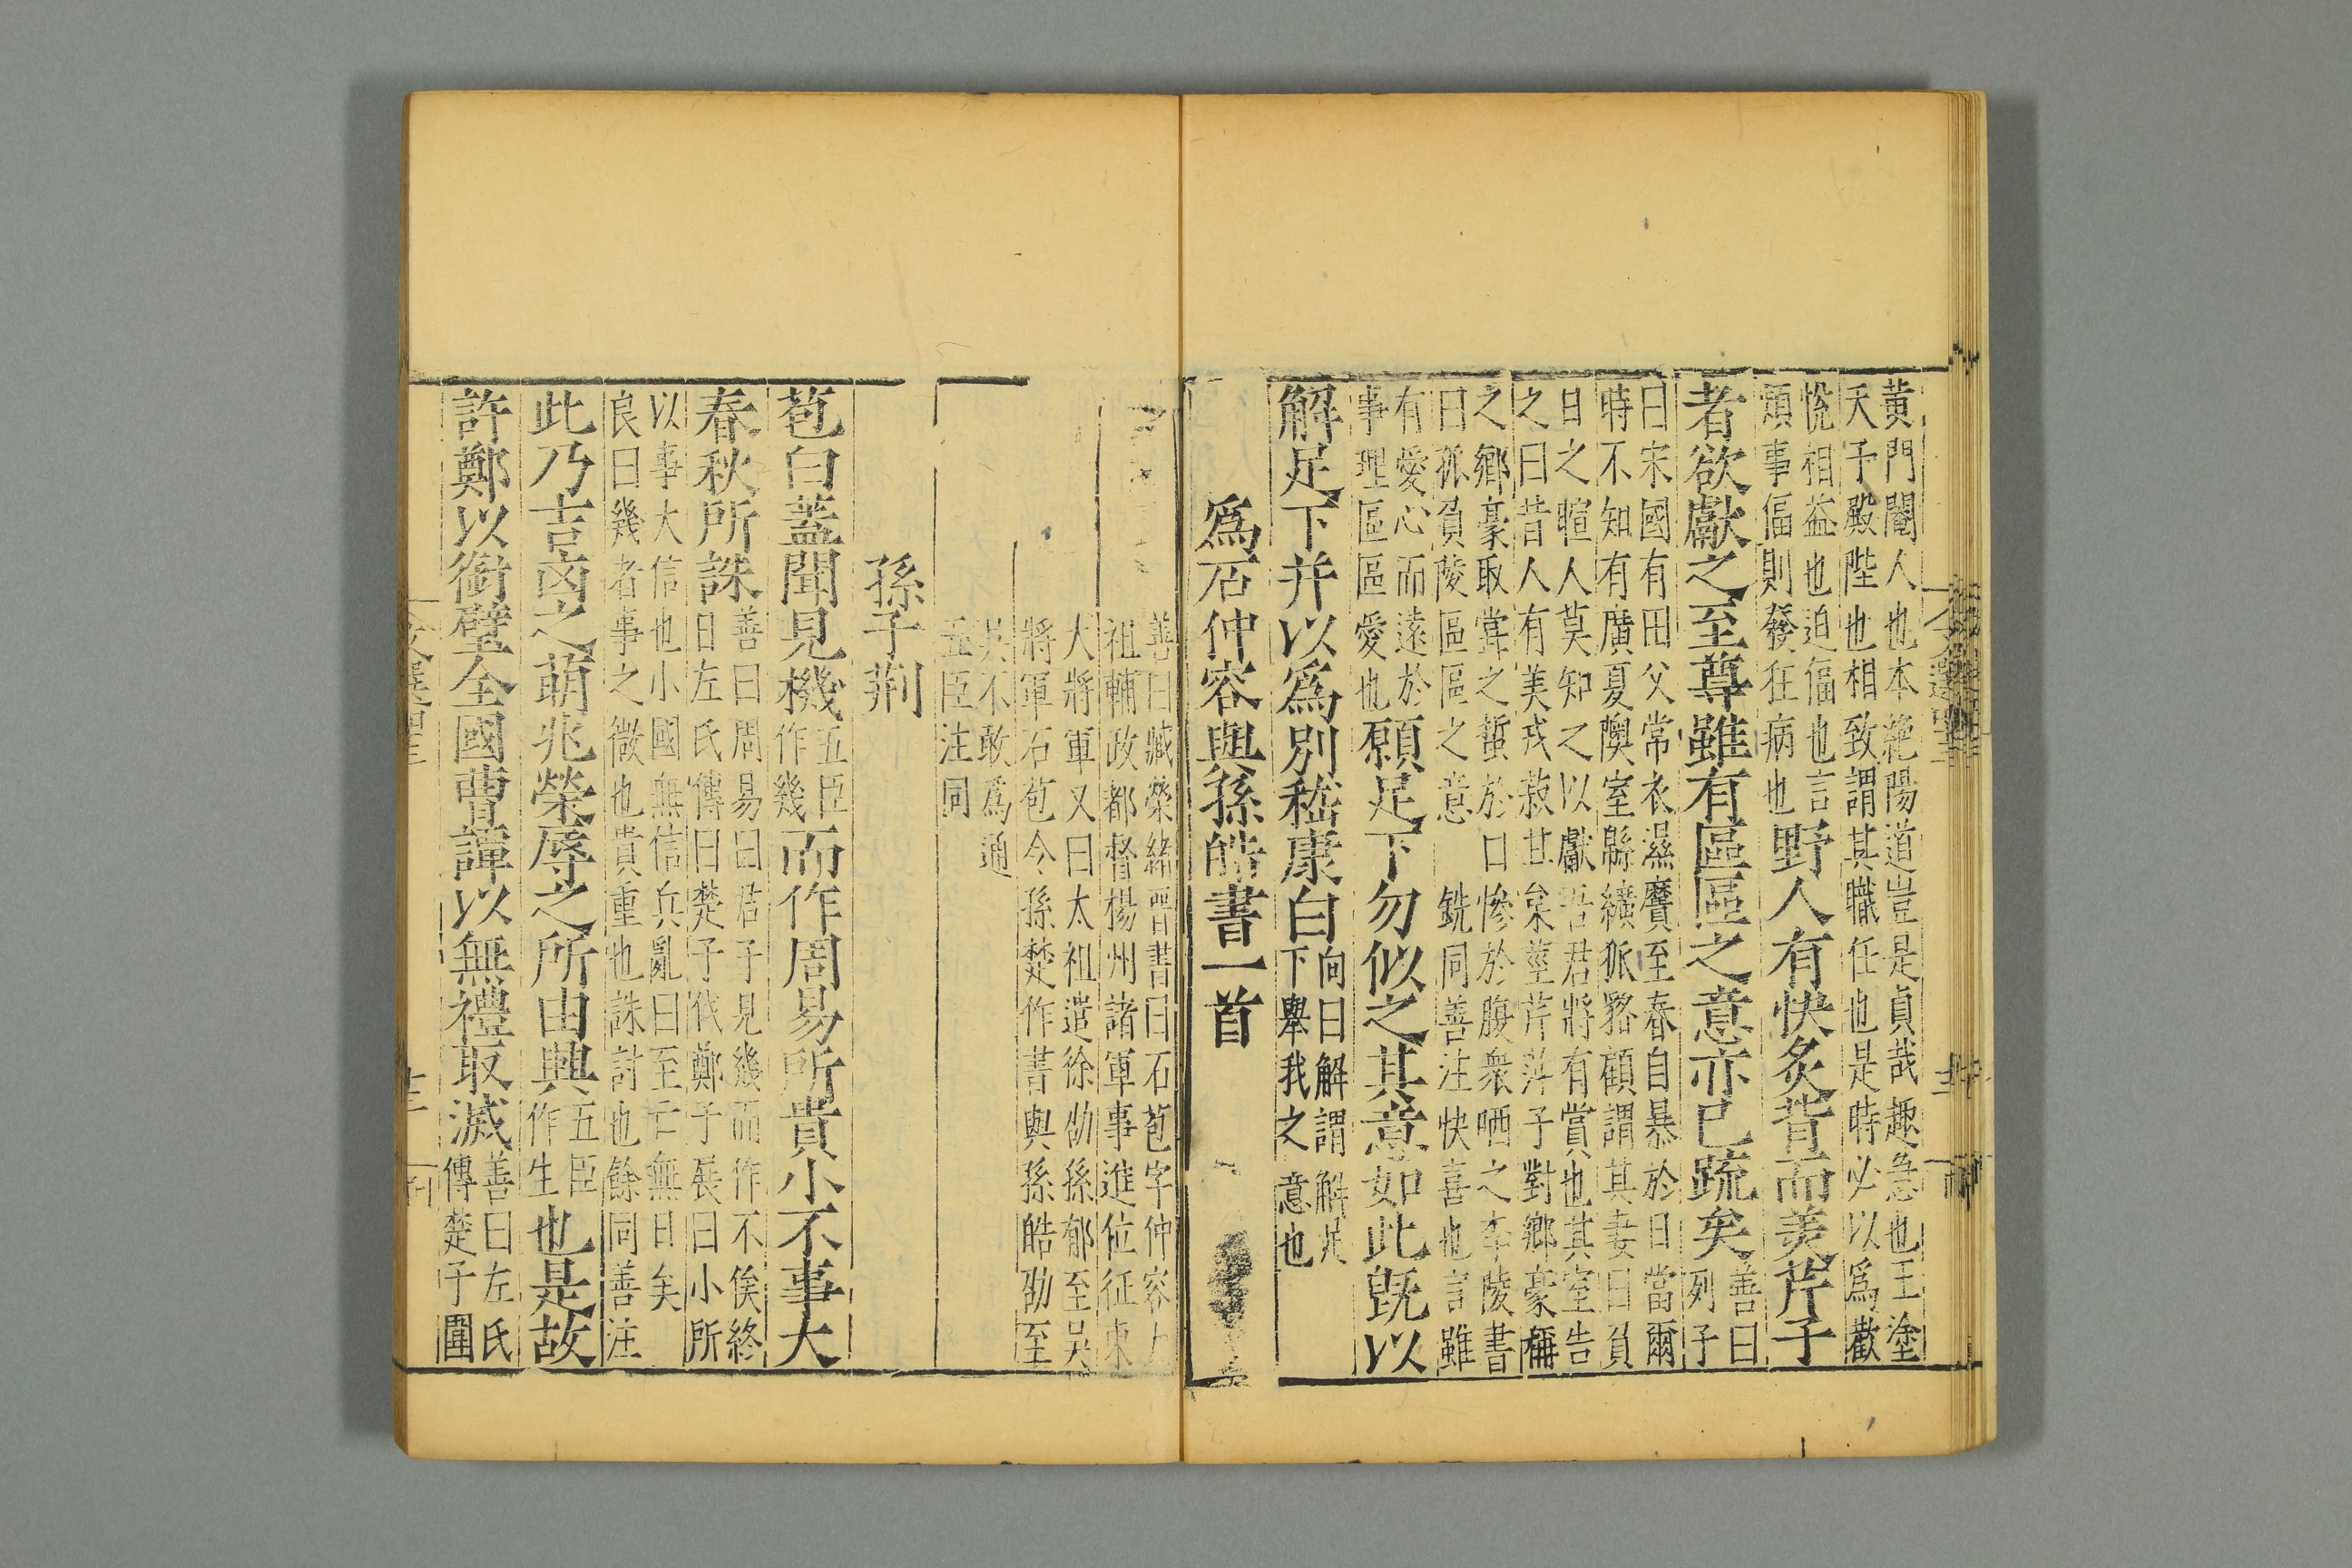 黄門閹人也本絶陽道豈是貞哉趣急也王塗
天子殿陛也相致謂其職任也是時必以爲歡
悦相益也迫傴也言
頻事傴則發狂病也
野人有快炙背而美芹子
者欲獻之至尊雖有區區之意亦已疏矣
善曰
列子
曰宋國有田父常衣濕黂至春自暴於日當爾
時不知有廣夏隩室緜纊狐貉顧謂其妻曰負
日之暄人莫知之以獻吾君將有賞也其室告
之曰昔人有美戎菽甘枲莖芹萍子對鄉豪稱
之鄉豪取甞之蜇於口慘於腹衆哂之李陵書
曰孤負陵區區之意 銑同善注快喜也言雖
有愛心而遠於
事理區區愛也
願足下勿似之其意如此旣以
解足下并以爲別嵇康白
向曰解謂解足
下舉我之意也
爲石仲容與孫皓書一首
善曰臧榮緒晉書曰石苞字仲容
祖輔政都督楊州諸軍事進位征東
大將軍又曰太祖遣徐劭孫郁至吳
將軍石苞令孫楚作書與孫皓劭至
吳不敢爲通
五臣注同
孫子荆
苞白蓋聞見機
五臣
作幾
而作周易所貴小不事大
春秋所誅
善曰周易曰君子見幾而作不俟終
日左氏傳曰楚子伐鄭子展曰小所
以事大信也小國無信兵亂日至亡無日矣
良曰幾者事之微也貴重也誅討也餘同善注
此乃吉凶之萌兆榮辱之所由興
五臣
作生
也是故
許鄭以銜璧全國曹譚以無禮取滅
善曰左氏
傳楚子圍